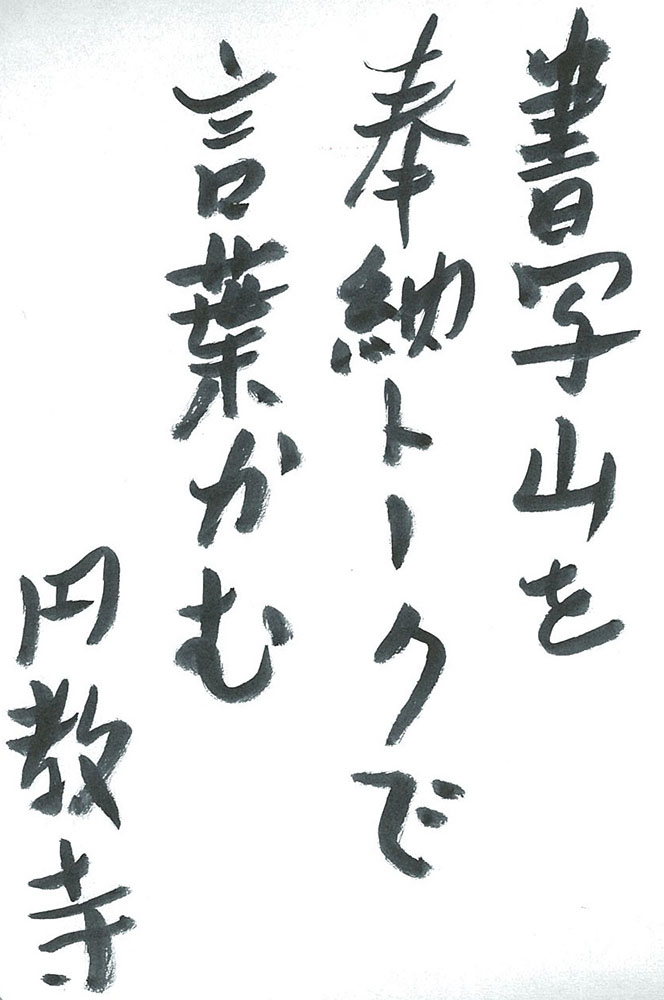 書写山を
奉納トークで
言葉かむ
円教寺